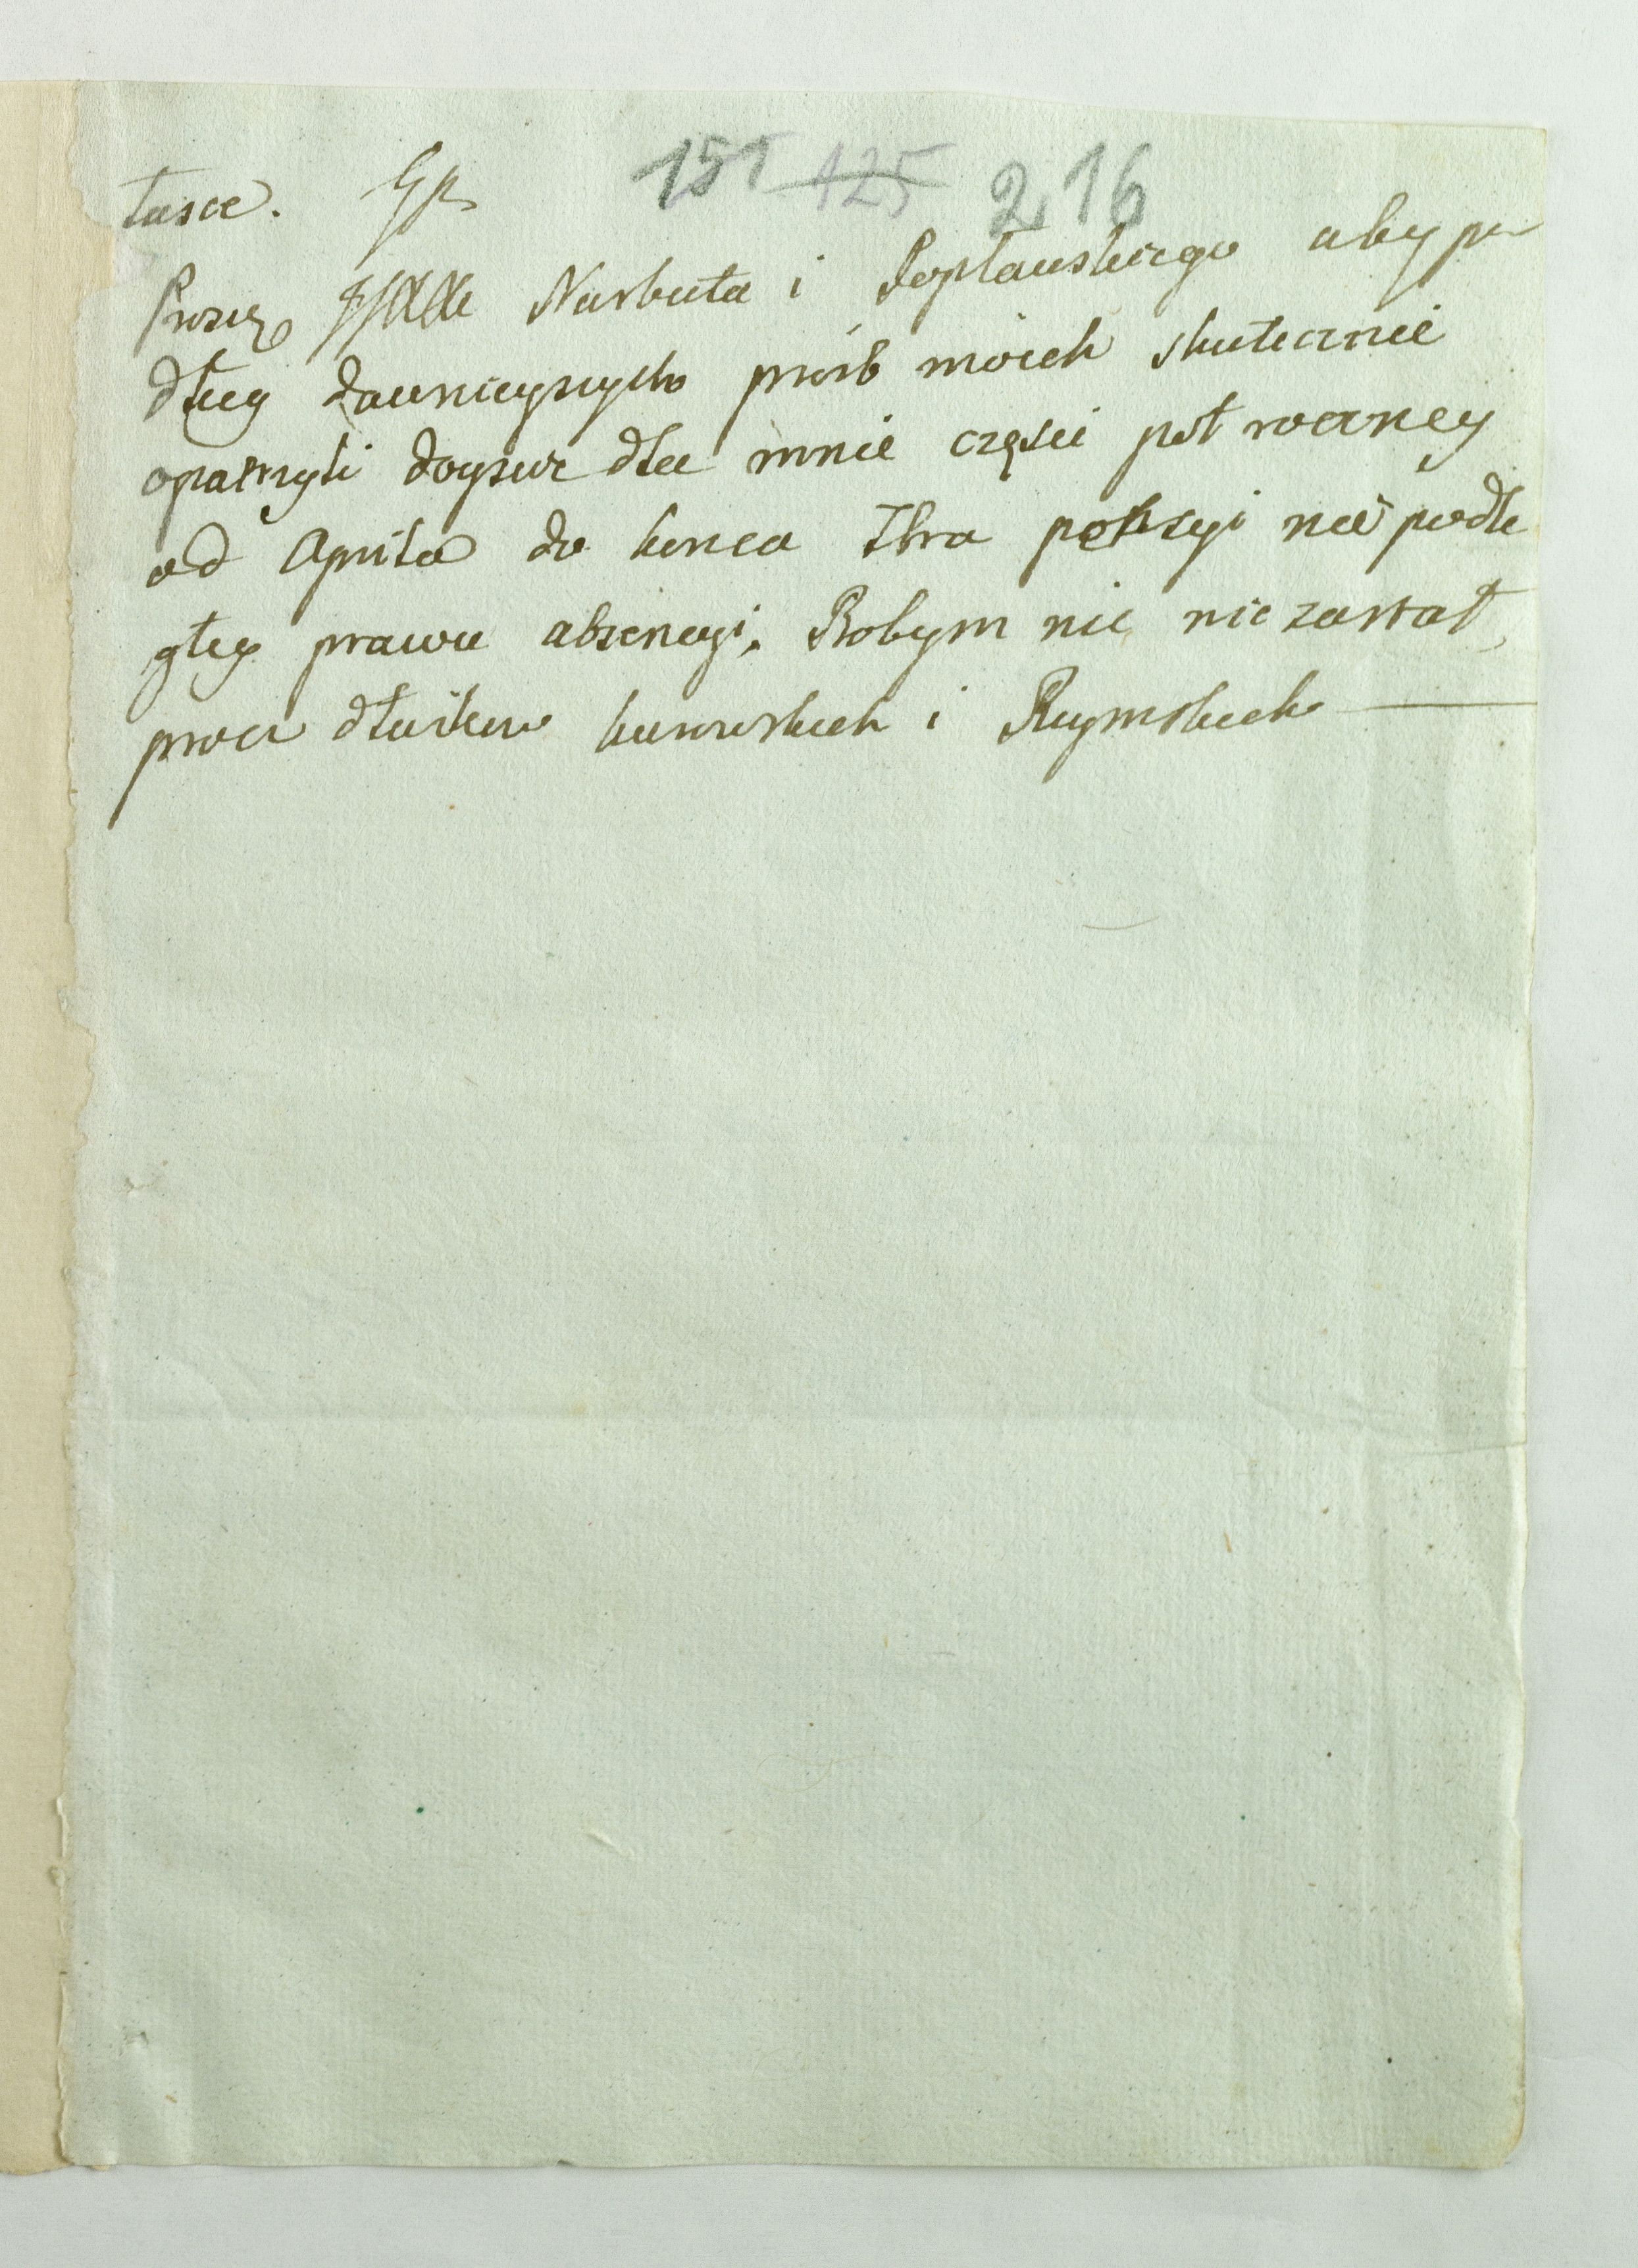 łasce. Gp
151 125 216
Proszę Narbuta i Popławskiego aby po
dług dawnieyszych prośb moich skutecznie
opatrzyli dożyw dla mnie części poł roczney
od Aprila do konca 7bra pensyi nie podle
głey prawu absencyi. Bobym nic nie zastał
procz długow kurowskich i Rzymskich